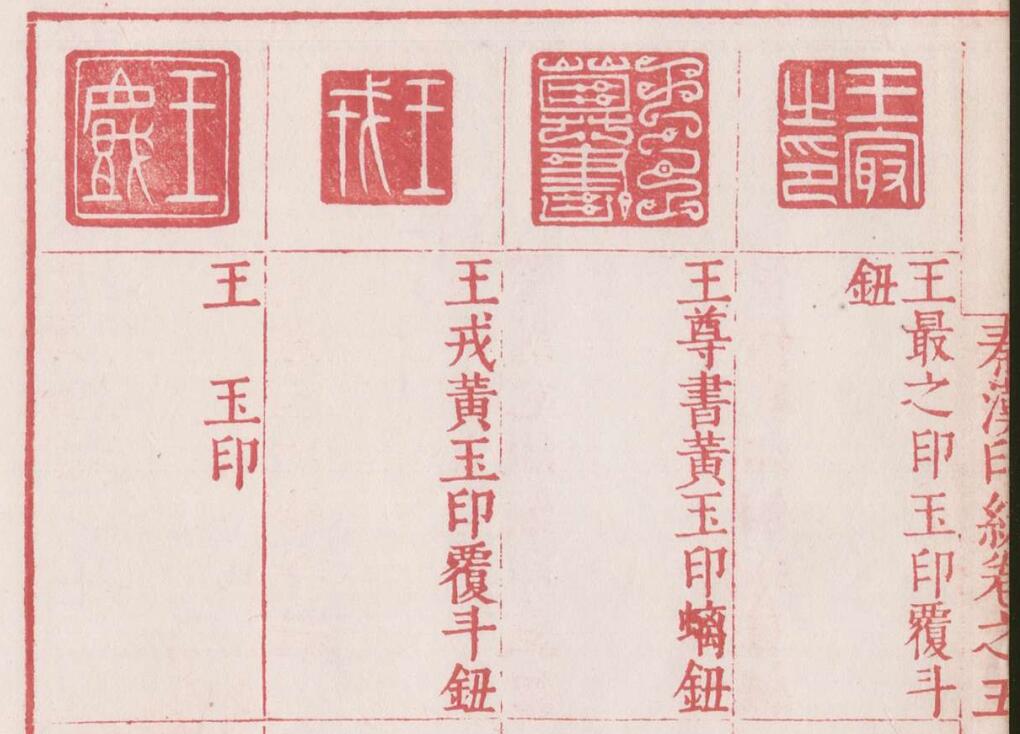 秦漢印統卷之五
王㝡
之印
王最之印玉印覆斗
鈕
王尊書黃玉印螭鈕
王戎
王戎黃玉印覆斗鈕
王
王 玉印